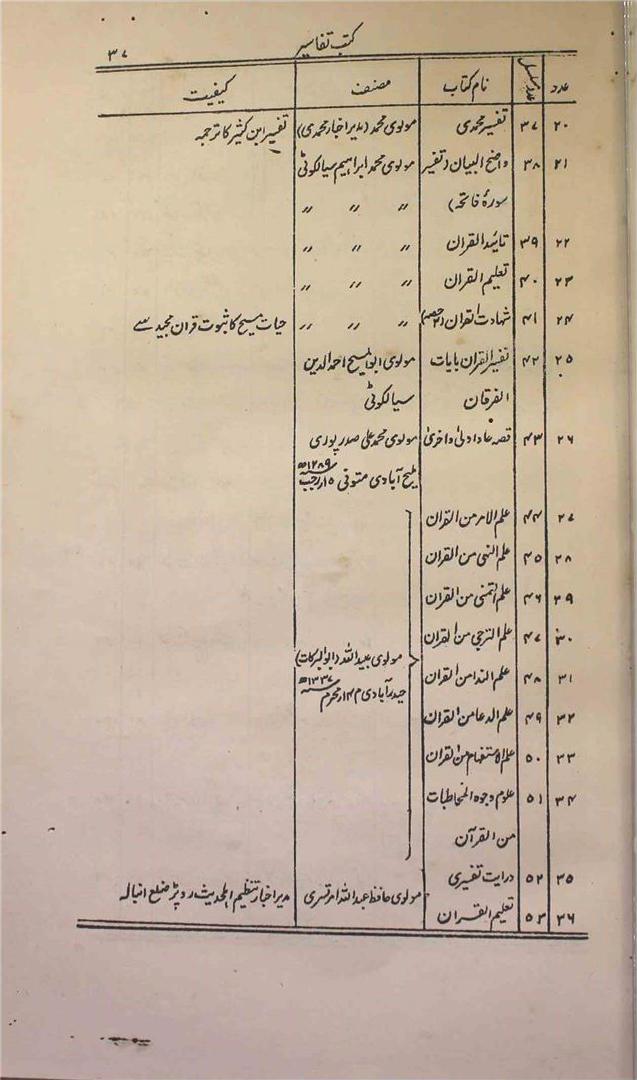 کتب تفاسیر ۳۷
عدد عدد مسلسل نام کتاب مصنف کیفیت
۲۰ ۳۷ تفسیر محمدی مولوی محمد (مدیر اخبار محمدی) تفسیر ابن کثیر کا ترجمہ
۲۱ ۳۸ واضح البیان (تفسیر مولوی محمد ابراہیم سیالکوٹی
سورۂ فاتحہ) 〃 〃 〃
۲۲ ۳۹ تائید القرآن 〃 〃 〃
۲۳ ۴۰ تعلیم القرآن 〃 〃 〃
۲۴ ۴۱ شہادت القرآن (۲ حصہ) 〃 〃 〃 حیات مسیح کا ثبوت قرآن مجید سے
۲۵ ۴۲ تفسیر القرآن بایات مولوی ابوالمسیح احمد الدین
الفرقان سیالکوٹی
۲۶ ۴۳ قصہ عاد اولیٰ و اخریٰ مولوی محمد علی صدرپوری
ملیح آبادی متوفی ۱۵ رجب ۱۲۸۹ھ
۲۷ ۴۴ علم الامر من القرآن
۲۸ ۴۵ علم النہی من القرآن
۲۹ ۴۶ علم التمنی من القرآن
۳۰ ۴۷ علم الترجی من القرآن
مولوی عبیداللہ (ابوالبرکات)
۳۱ ۴۸ علم الندا من القرآن
حیدرآبادی م ۱۴ محرم ۱۳۳۷ھ
۳۲ ۴۹ علم الدعا من القرآن
۳۳ ۵۰ علم الاستفہام من القرآن
۳۴ ۵۱ علوم وجوہ المخاطبات
من القرآن
۳۵ ۵۲ درایت تفسیری
مولوی حافظ عبداللہ امرتسری مدیر اخبار تنظیم اہلحدیث روپڑ ضلع انبالہ
۳۶ ۵۳ تعلیم القرآن